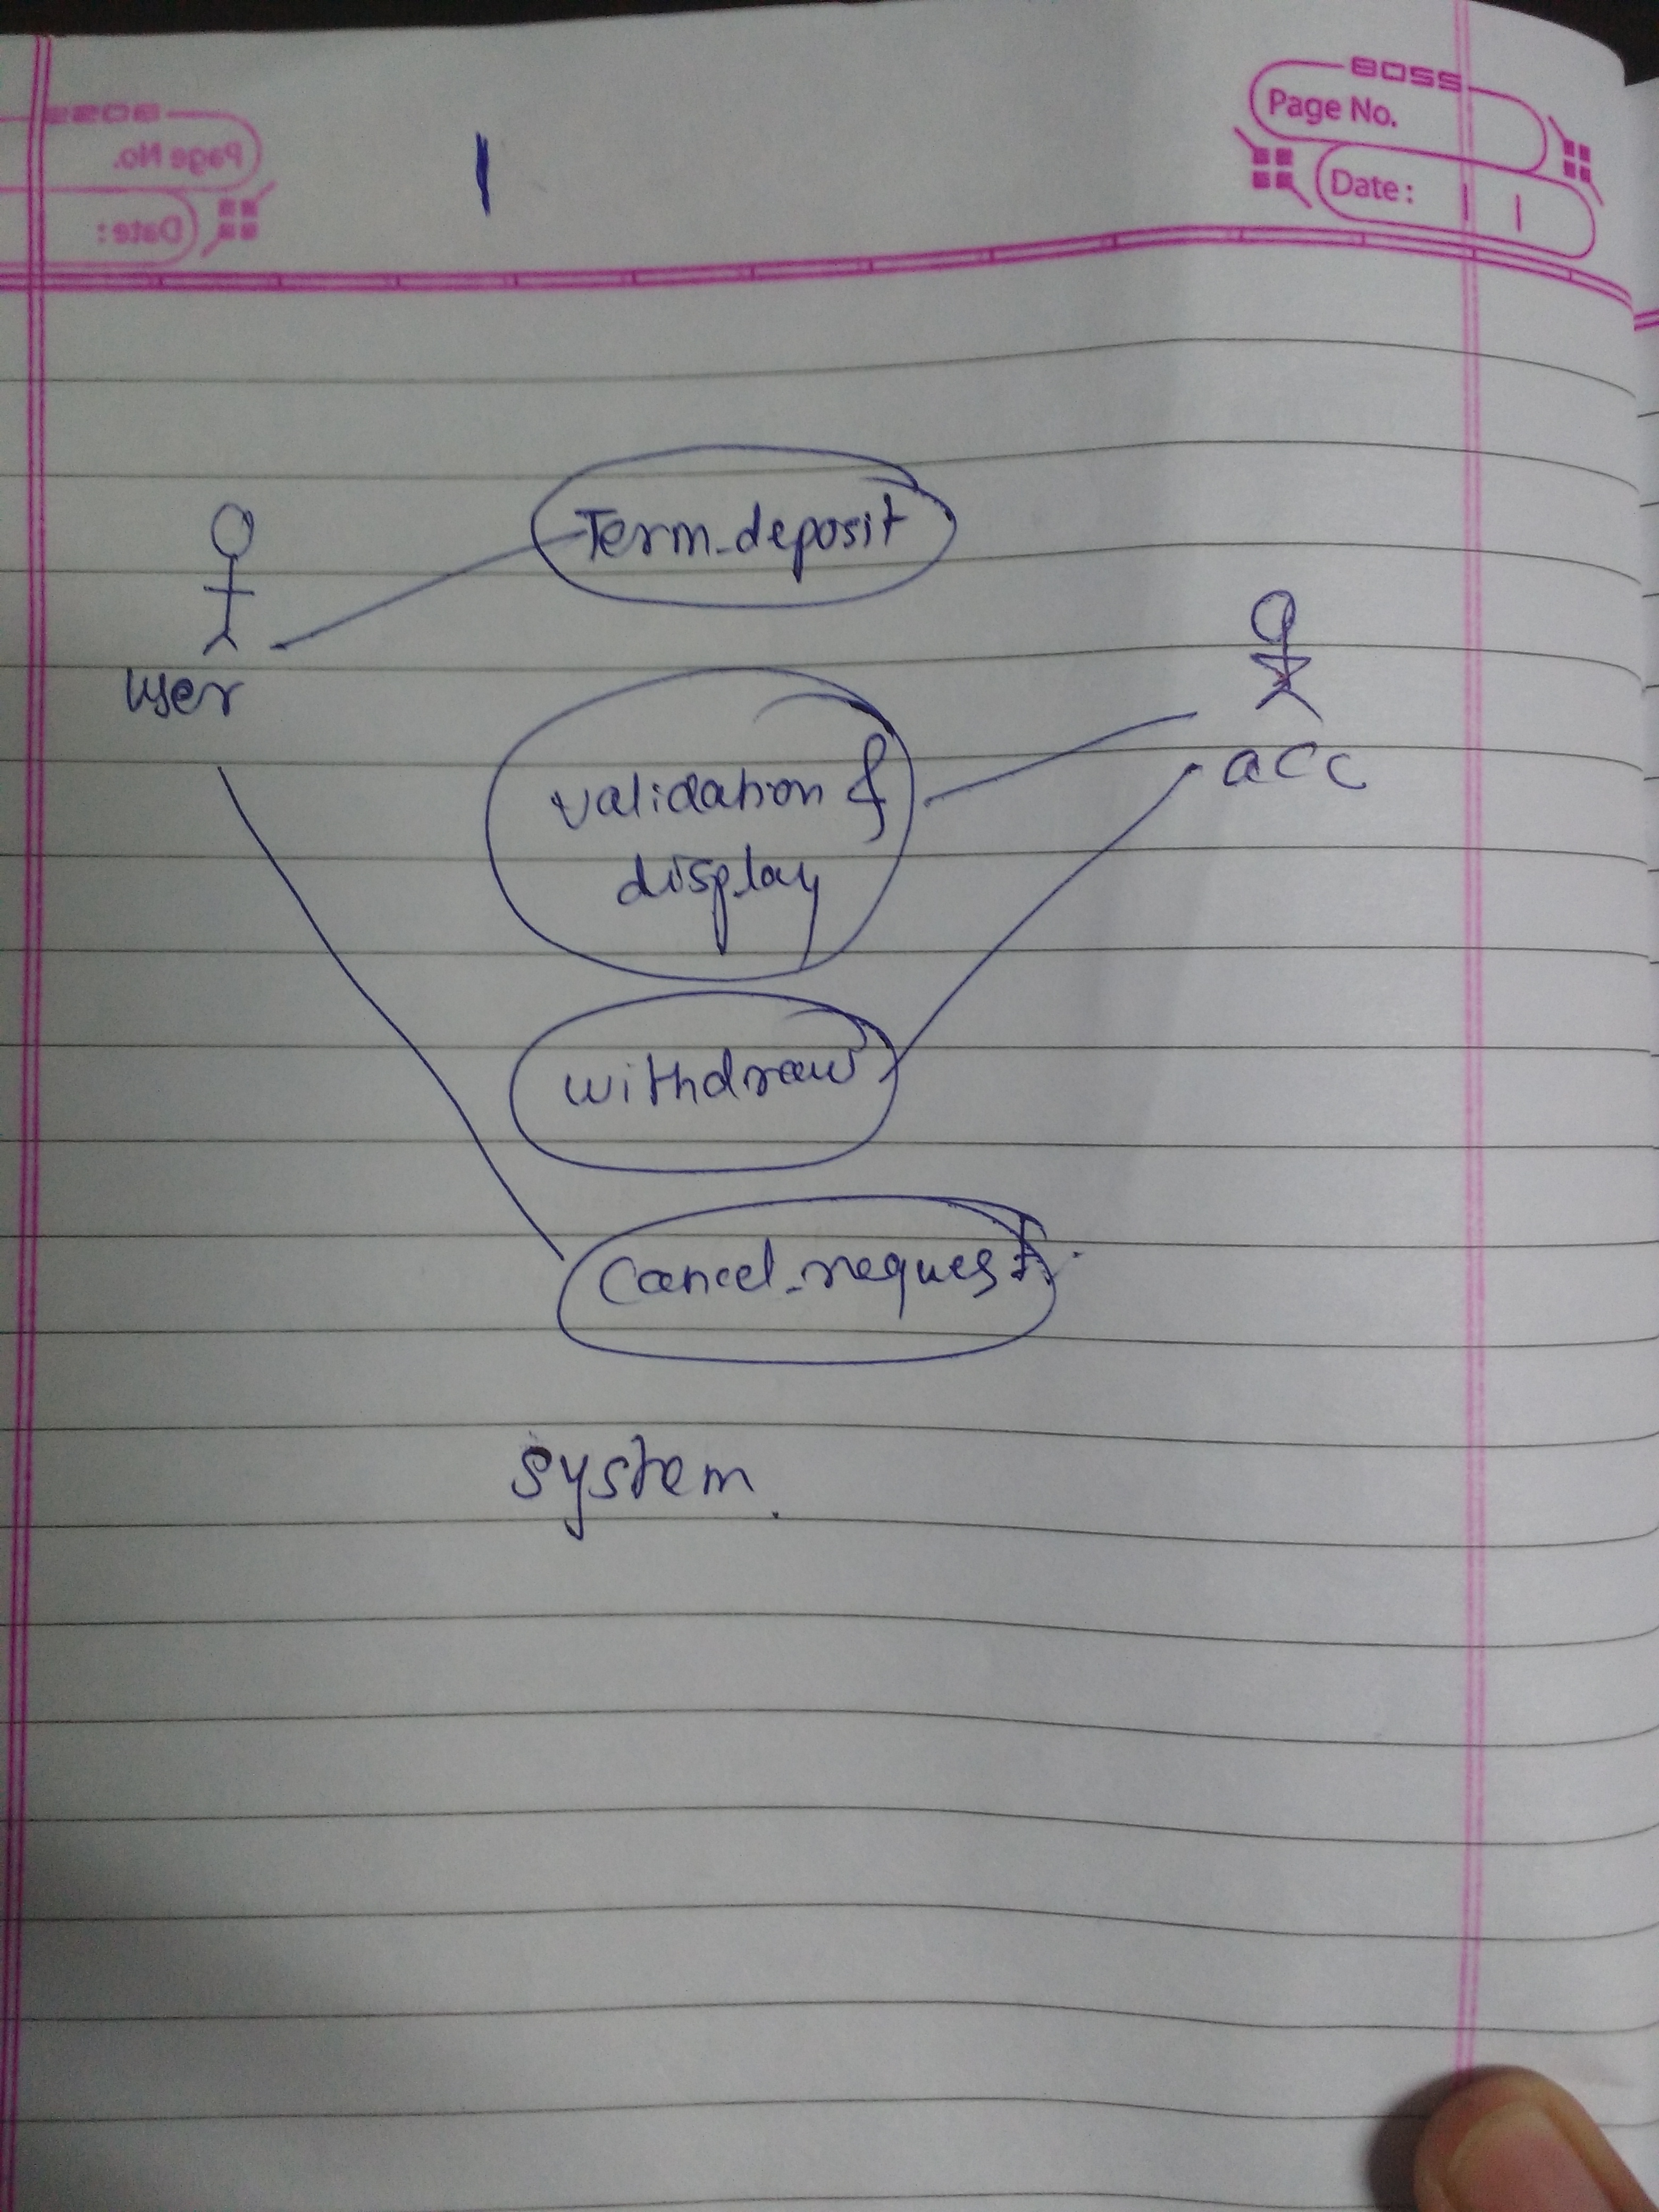 BOSS
Page No.
Date :
1
Term_deposit
user
acc
validation &
display
withdraw
Cancel_request.
System.